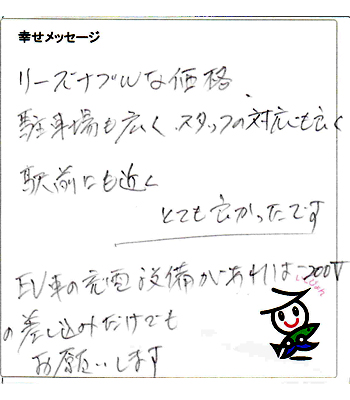 幸せメッセージ
リーズナブルな価格、
駐車場も広く スタッフの対応も良く
駅前にも近く
とても良かったです
EV車の充電設備があれば 200V
の差し込みだけでも
お願いします